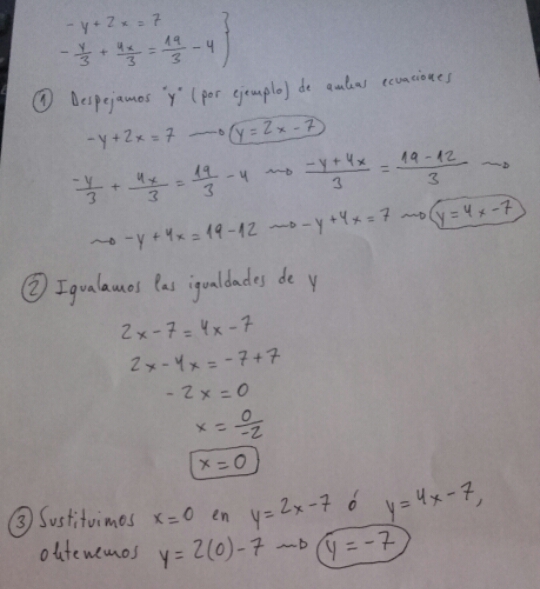 -y+2x=7
-y/3 + 4x/3 = 19/3 - 4 }
① Despejamos "y" (por ejemplo) de ambas ecuaciones
-y+2x=7 ⟿ y=2x-7
-y/3 + 4x/3 = 19/3 - 4 ⟿ (-y+4x)/3 = (19-12)/3 ⟿
⟿ -y+4x=19-12 ⟿ -y+4x=7 ⟿ y=4x-7
② Igualamos las igualdades de y
2x-7=4x-7
2x-4x=-7+7
-2x=0
x=0/-2
x=0
③ Sustituimos x=0 en y=2x-7 ó y=4x-7,
obtenemos y=2(0)-7 ⟿ y=-7